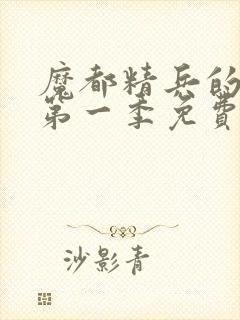 魔都精兵的
第一季免費
沙影青